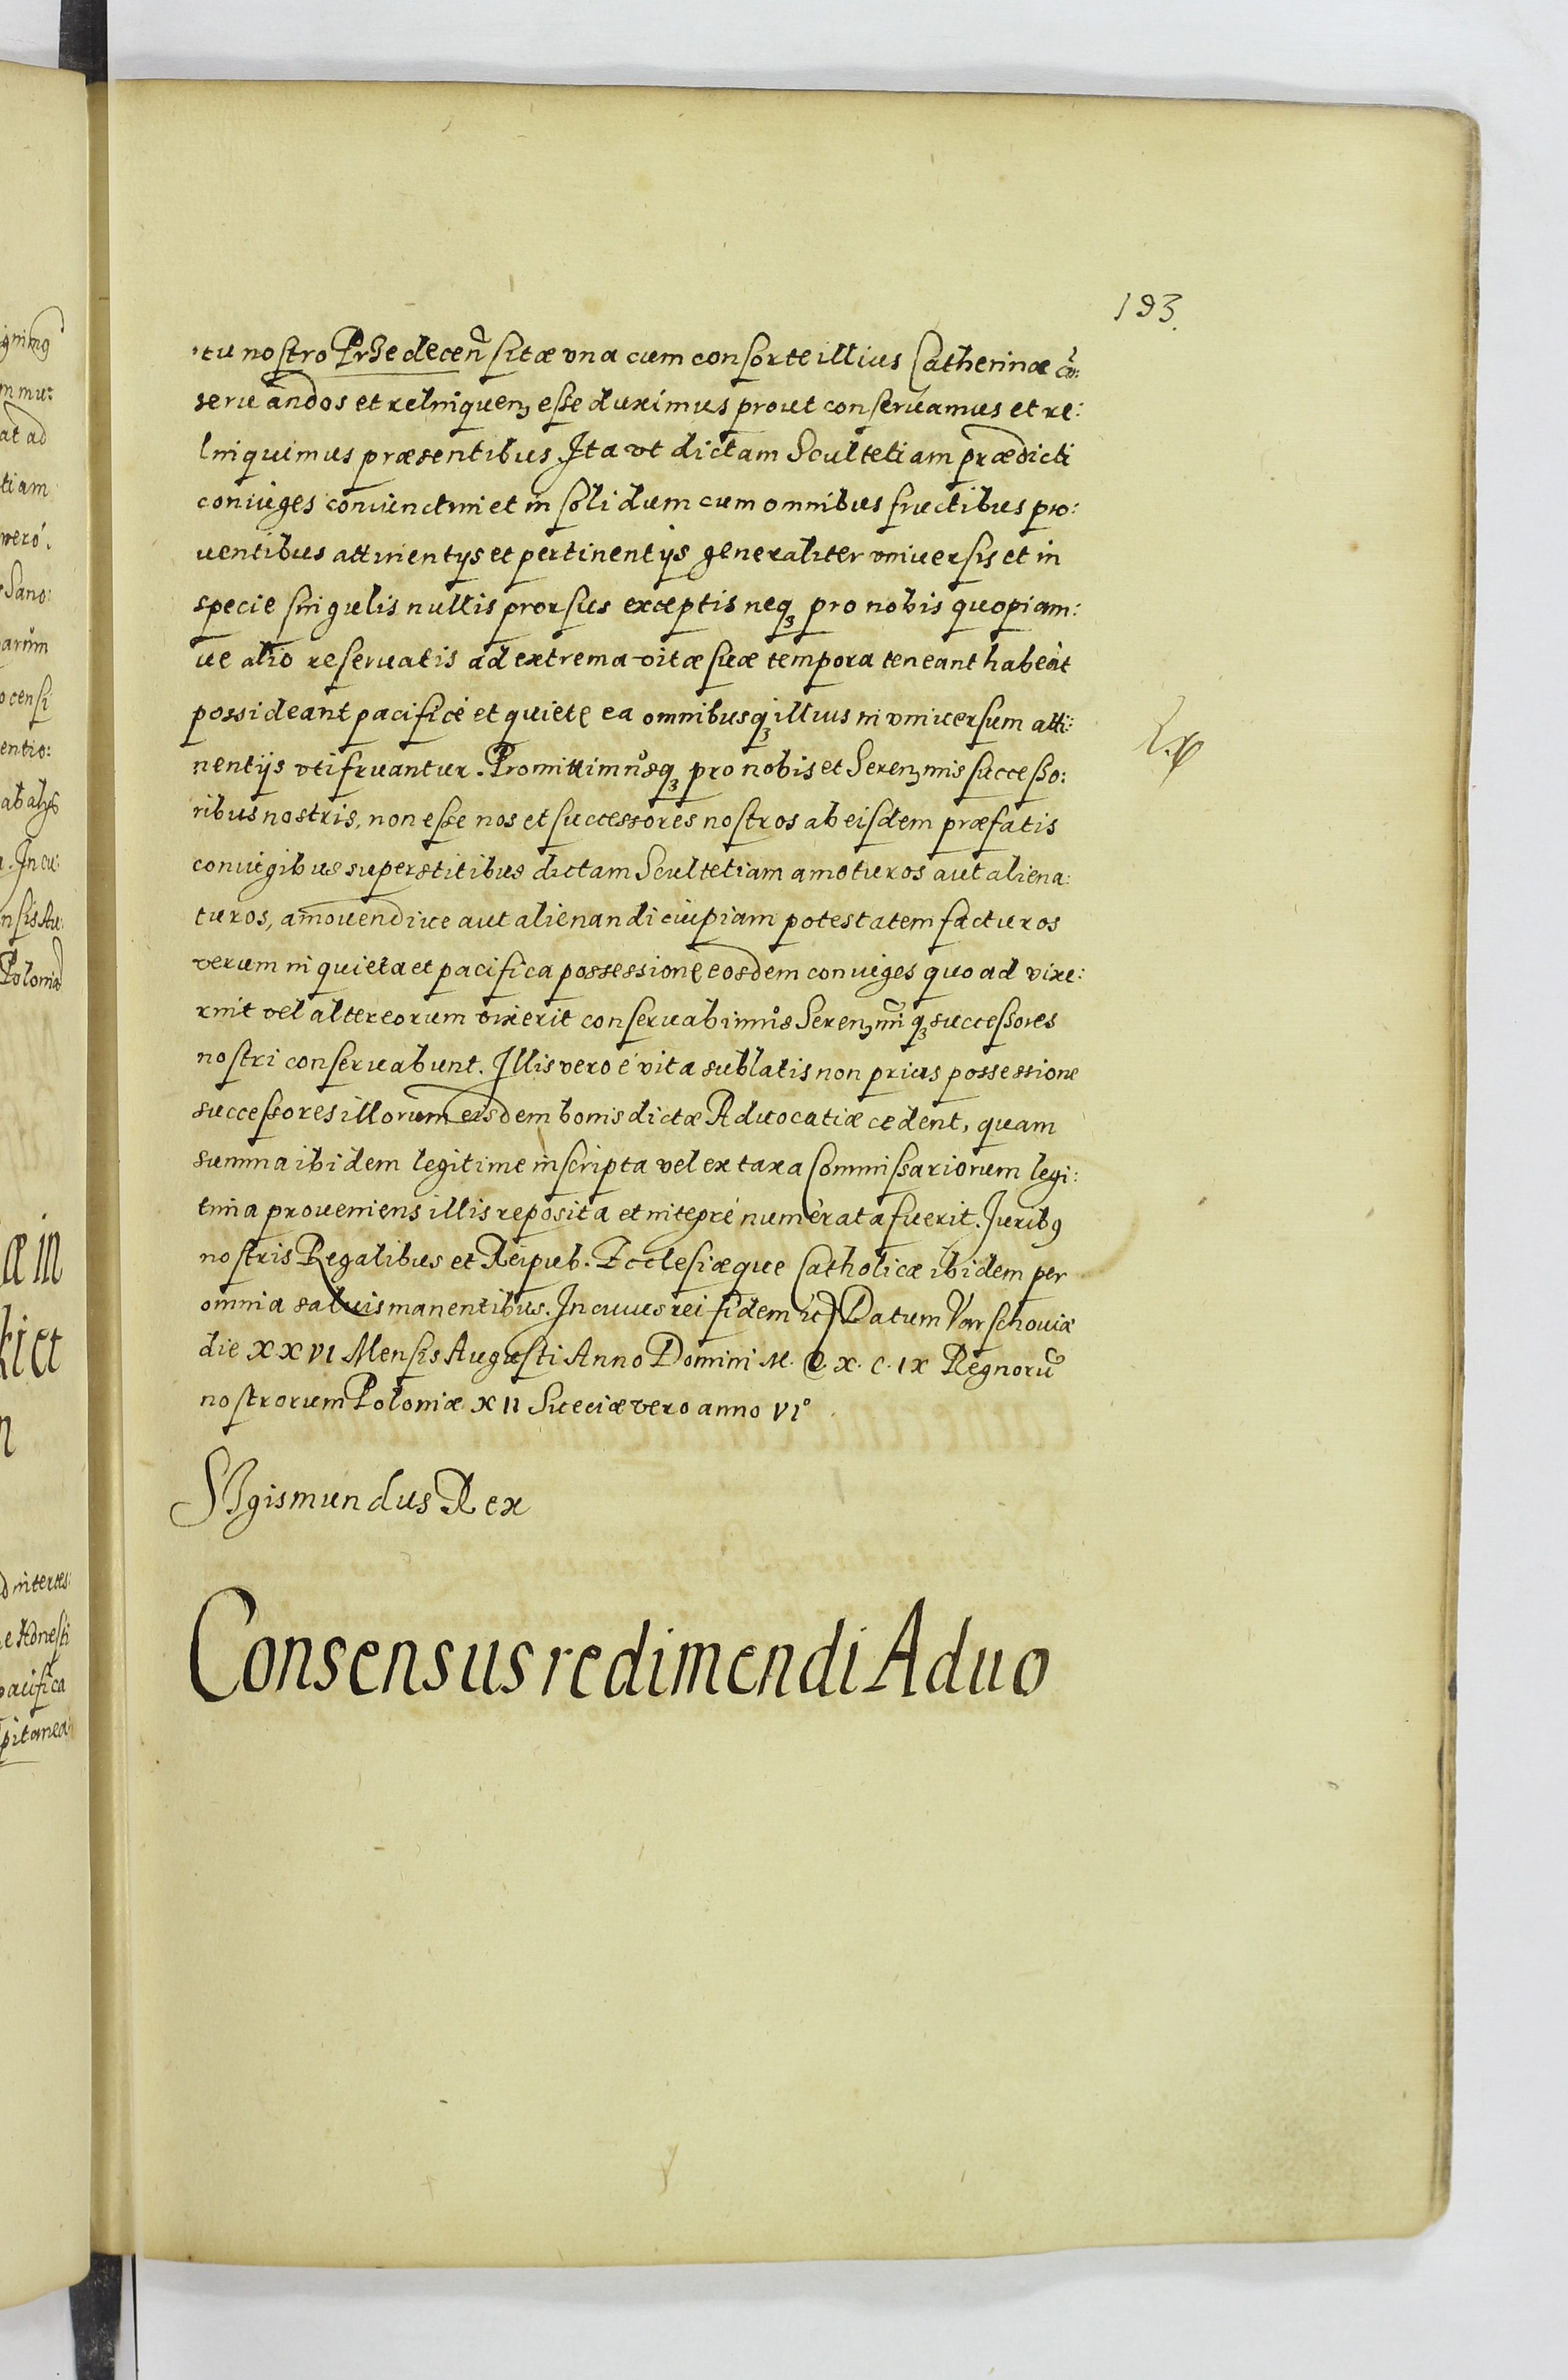 193.
tu nostro Przedecen̄ sitæ vna cum consorte illius Catherinæ cō:
seruandos et relinquenȝ esse duximus prout conseruamus et re:
linquimus præsentibus. Ita vt dictam Scultetiam prædicti
coniuges coniunctim et in solidum cum omnibus fructibus pro:
uentibus attinentijs et pertinentijs generaliter vniuersis et in
specie singulis nullis prorsus exceptis neqȝ pro nobis quopiam:
ue alio reseruatis ad extrema vitæ suæ tempora teneant habeāt
possideant pacificè et quietè ea omnibusqȝ illius in vniuersum atti:
nentijs vtifruantur. Promittimusqȝ pro nobis et Serenȝmis successo:
ribus nostris, non esse nos et successores nostros ab eisdem præfatis
coniugibus superstitibus dictam Scultetiam amoturos aut aliena:
turos, amouendiue aut alienandi cuipiam potestatem facturos
verum in quieta et pacifica possessione eosdem coniuges quoad vixe:
rint vel alter eorum vixerit conseruabimus Serenȝmiqȝ successores
nostri conseruabunt. Illis vero è vita sublatis non prius possessione
successores illorum eisdem bonis dictæ Aduocatiæ cedent, quam
summa ibidem legitime inscripta vel ex taxa Commissariorum legi:
tima proueniens illis reposita et integrè numerata fuerit. Juribꝰ
nostris Regalibus et Reipub. Ecclesiæque Catholicæ ibidem per
omnia saluis manentibus. In cuius rei fidem etc Datum Varschouiæ
die XXVI Mensis Augusti Anno Domini M. D. X. C. IX Regnorū
nostrorum Poloniæ XII Sueciæ vero anno VI°
SIgismundus Rex
Consensus redimendi Aduo